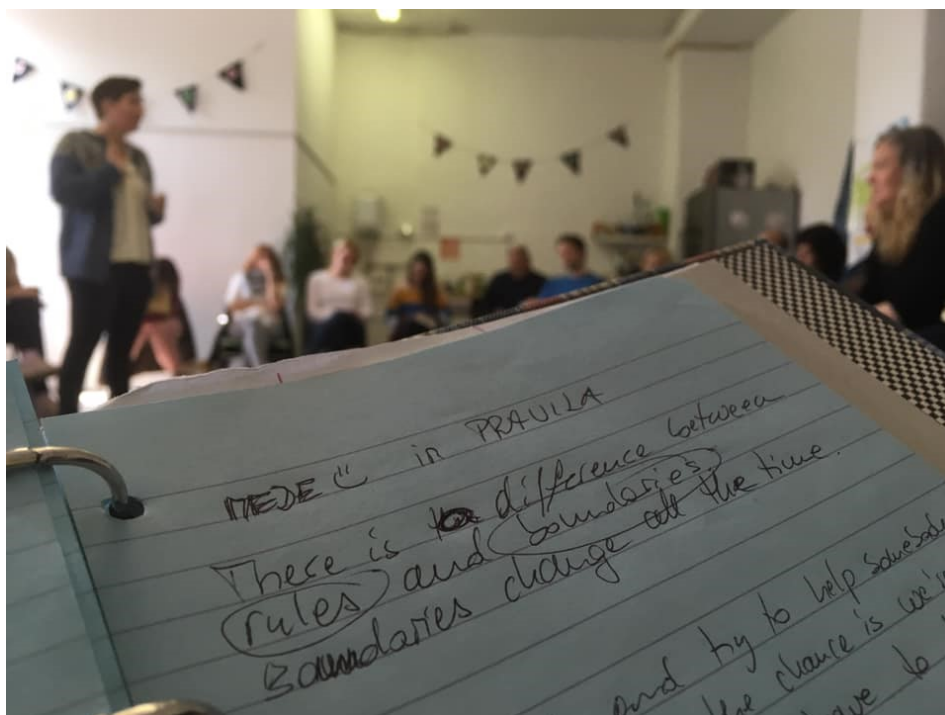 MEJE in PRAVILA
There is difference between
rules and boundaries.
Boundaries change all the time.
and try to help somebody
the chance is we're